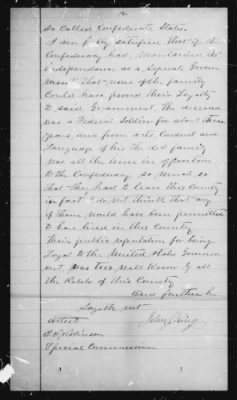 So Called Confederate States
I am fully satisfied that if the
Confederacy had maintained its
independence as a Separate Govern
ment that none of the family
Could have proved their Loyalty
to said Government. The deceased
was a Federal Soldier for about three
years, and from acts Conduct and
Language of his the family
was all the time in opposition
to the Confederacy, so much so
that they had to leave this County
in fact I do not think that any
of them would have been permitted
to have lived in this County
Their public reputation for being
Loyal to the United States Governm
ent, was too well Known by all
the Rebels of this County
And further he
Sayeth not
John King
Attest
Robinson
Special Commissioner